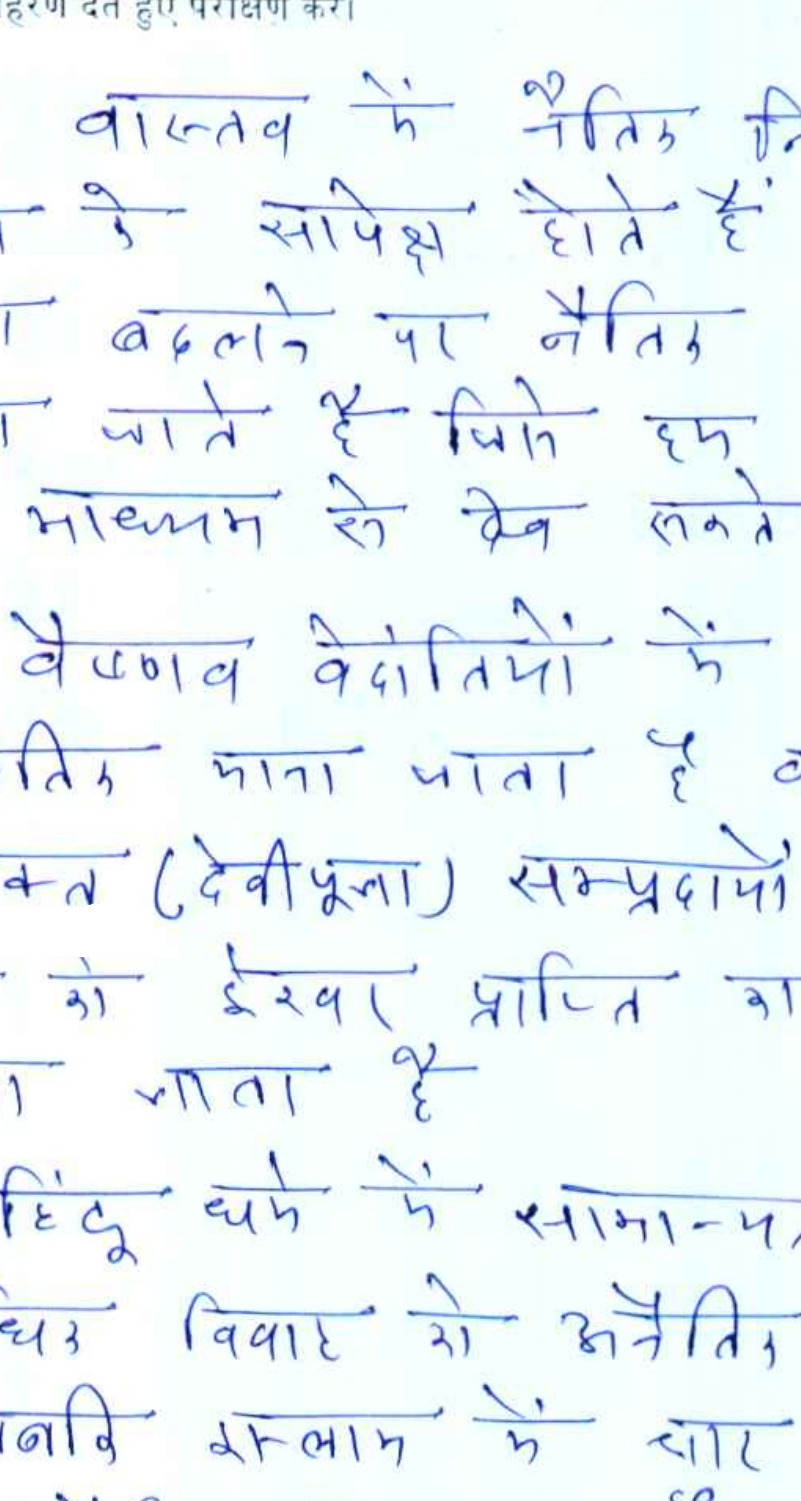 हरण देते हुए परीक्षण करें।
वास्तव में नैतिक नि
के सापेक्ष होते हैं
बदलने पर नैतिक
जाते है जिसे हम
माध्यम से देख सकते
वैष्णव वेदांतियों में
तिक माना जाता है व
क्त (देवीपूजा) सम्प्रदायों
को ईश्वर प्राप्ति का
जाता है
हिंदू धर्म में सामान्यत
धिक विवाह को अनैतिक
जबकि इस्लाम में चार